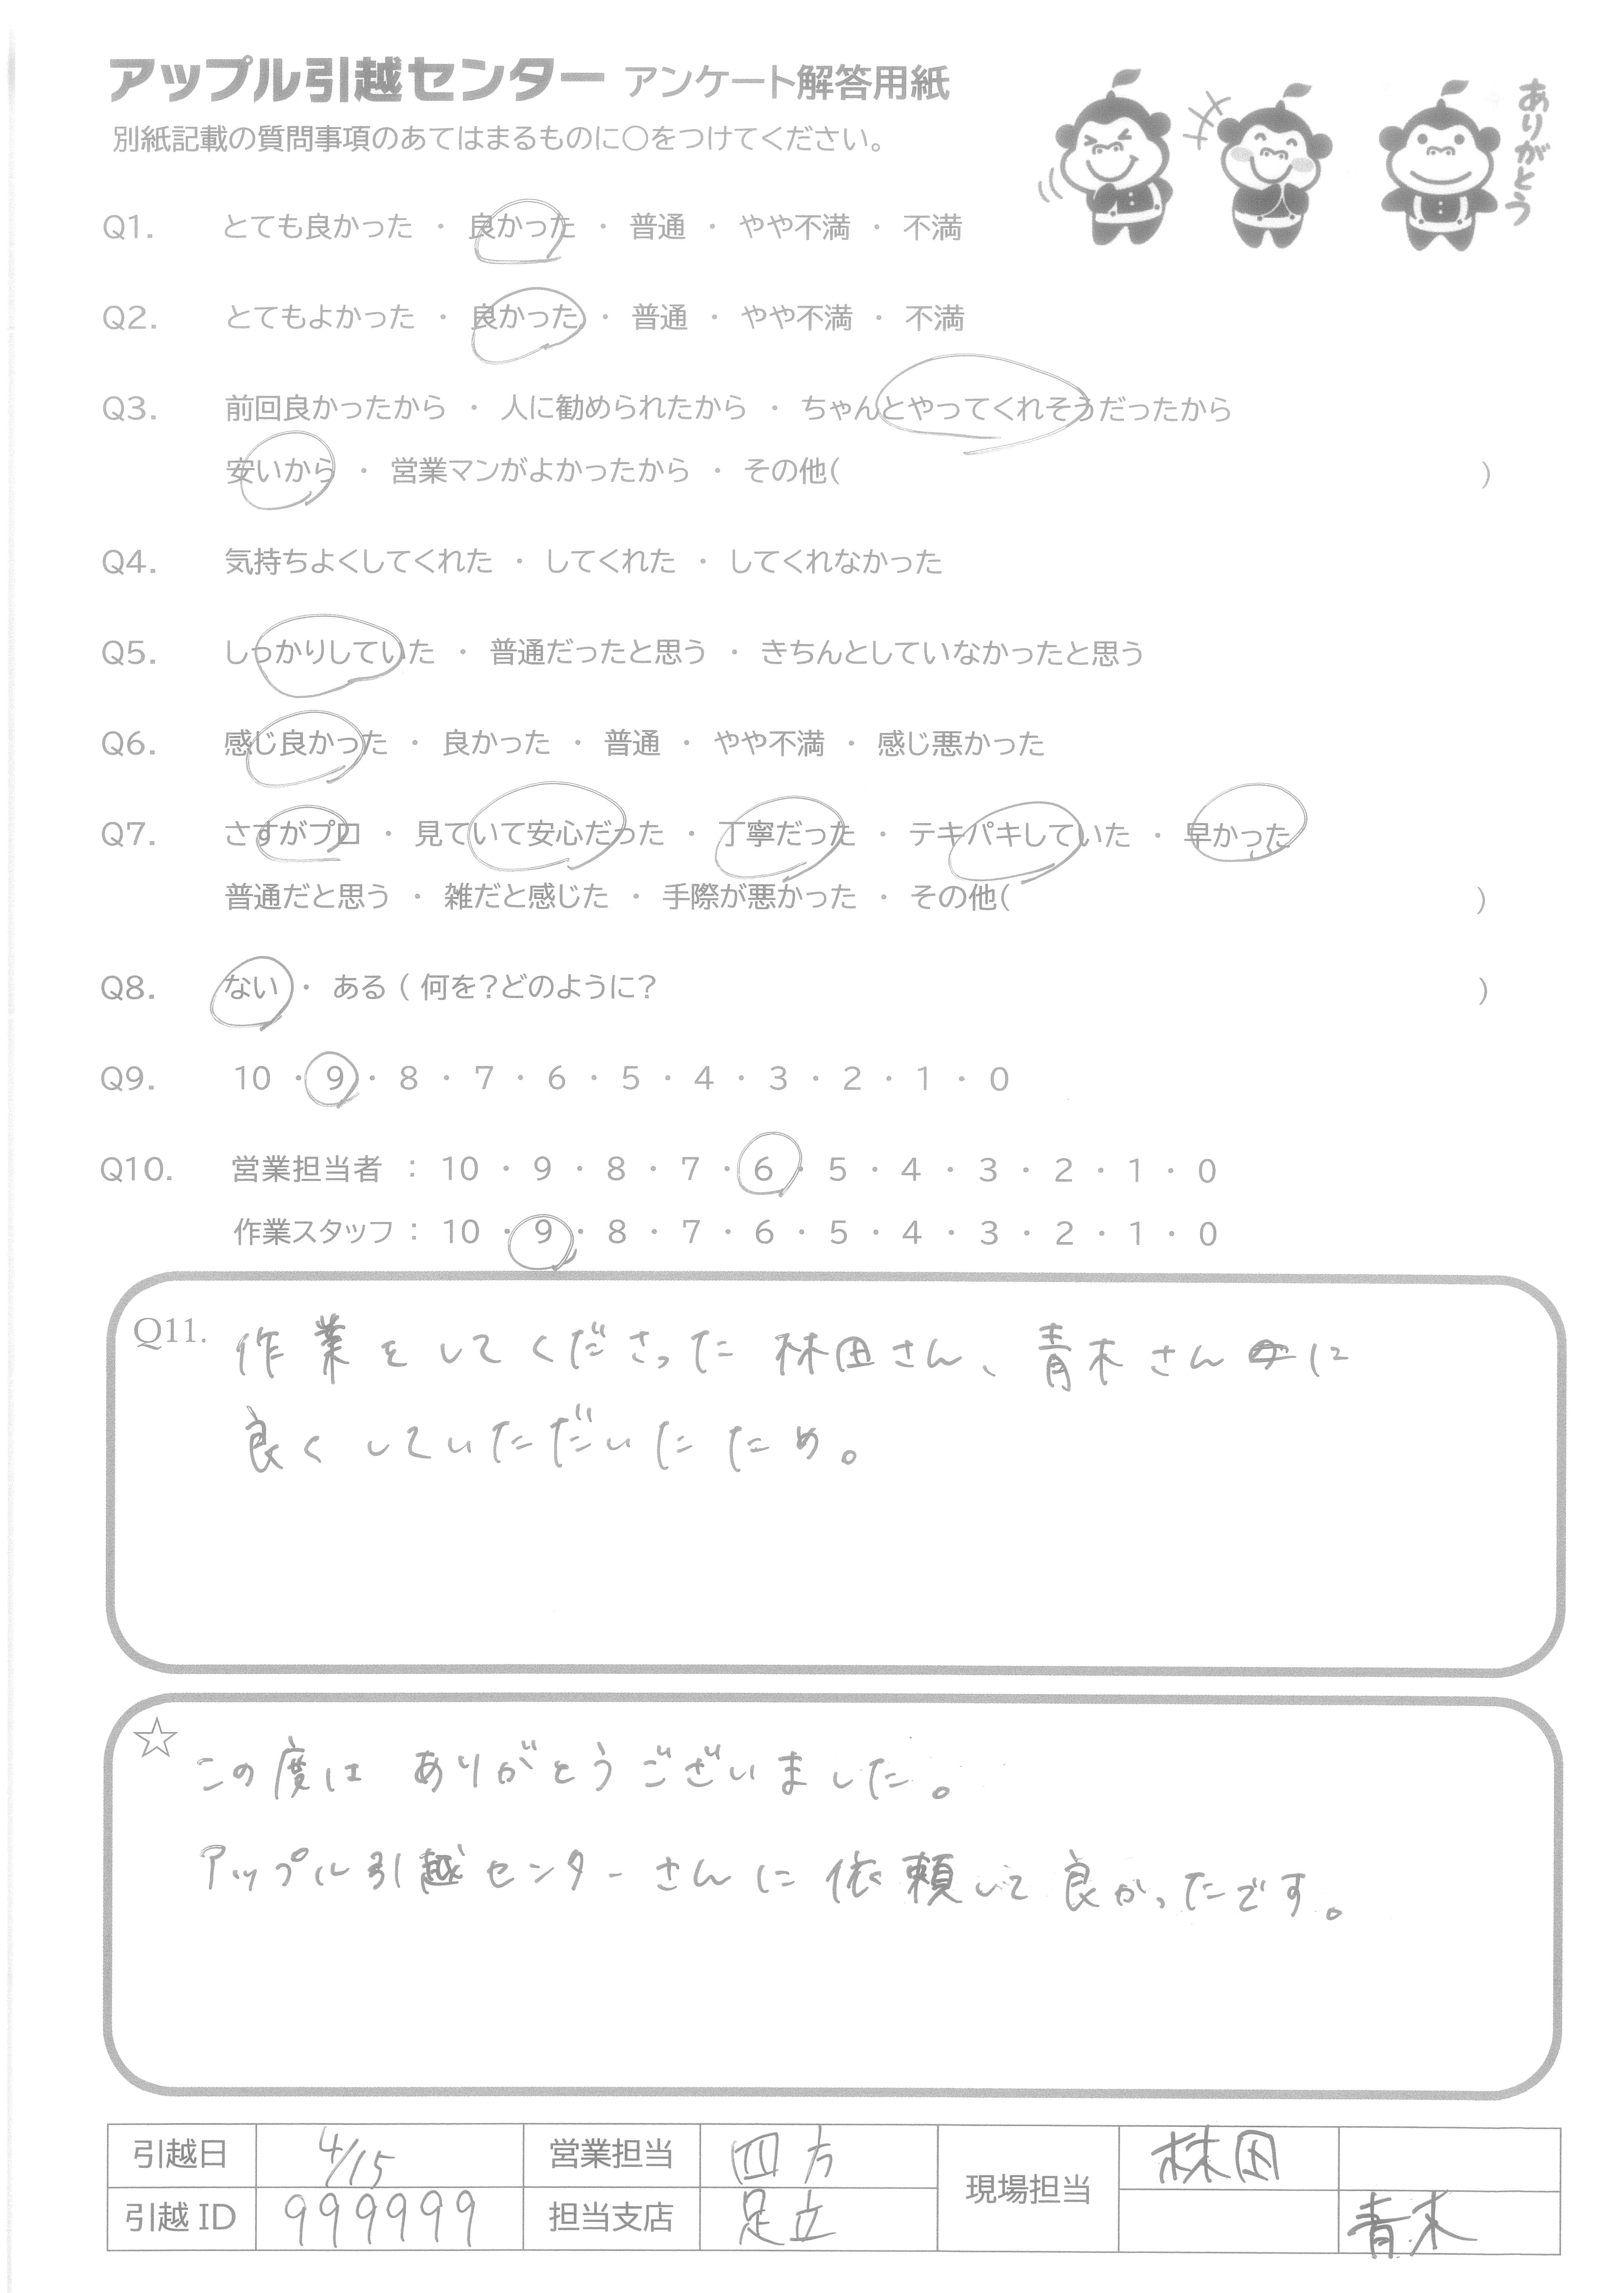 アップル引越センター アンケート解答用紙
ありがとう
別紙記載の質問事項のあてはまるものに○をつけてください。
Q1. とても良かった ・ 良かった ・ 普通 ・ やや不満 ・ 不満
Q2. とてもよかった ・ 良かった ・ 普通 ・ やや不満 ・ 不満
Q3. 前回良かったから ・ 人に勧められたから ・ ちゃんとやってくれそうだったから
安いから ・ 営業マンがよかったから ・ その他( )
Q4. 気持ちよくしてくれた ・ してくれた ・ してくれなかった
Q5. しっかりしていた ・ 普通だったと思う ・ きちんとしていなかったと思う
Q6. 感じ良かった ・ 良かった ・ 普通 ・ やや不満 ・ 感じ悪かった
Q7. さすがプロ ・ 見ていて安心だった ・ 丁寧だった ・ テキパキしていた ・ 早かった
普通だと思う ・ 雑だと感じた ・ 手際が悪かった ・ その他( )
Q8. ない ・ ある ( 何を?どのように? )
Q9. 10 ・ 9 ・ 8 ・ 7 ・ 6 ・ 5 ・ 4 ・ 3 ・ 2 ・ 1 ・ 0
Q10. 営業担当者 : 10 ・ 9 ・ 8 ・ 7 ・ 6 ・ 5 ・ 4 ・ 3 ・ 2 ・ 1 ・ 0
作業スタッフ : 10 ・ 9 ・ 8 ・ 7 ・ 6 ・ 5 ・ 4 ・ 3 ・ 2 ・ 1 ・ 0
Q11. 作業をしてくださった林田さん、青木さんに
良くしていただいたため。
☆ この度は ありがとうございました。
アップル引越センターさんに依頼して良かったです。
引越日 4/15 営業担当 四方 現場担当 林田
引越ID 999999 担当支店 足立 青木